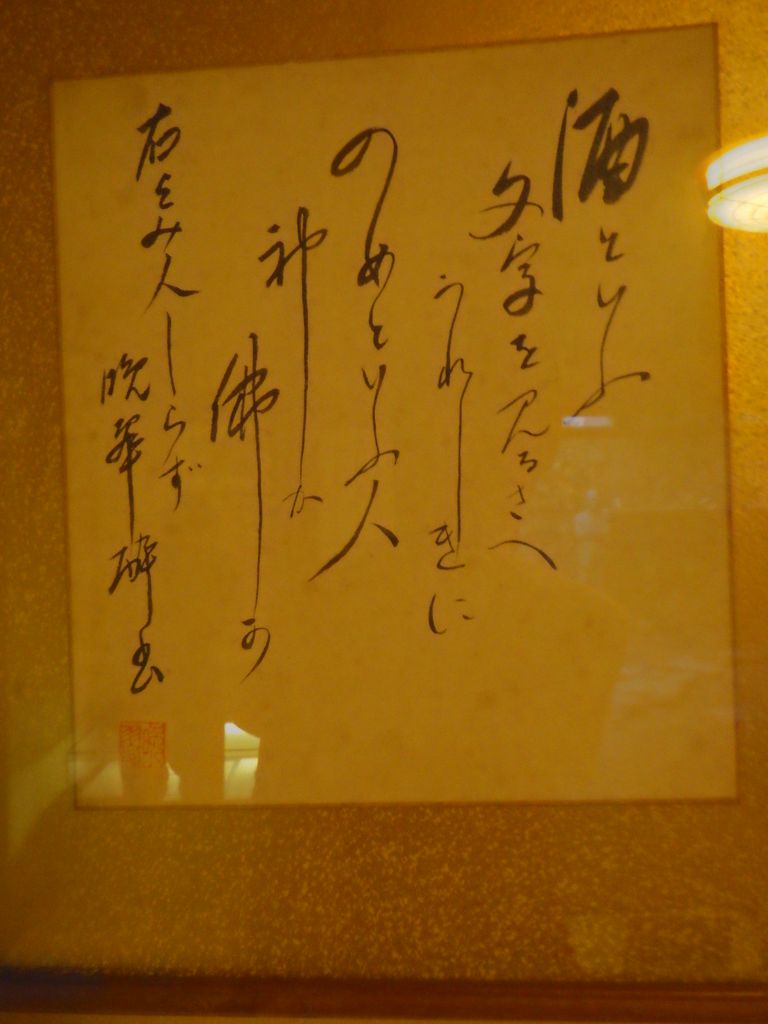 酒といふ
文字を見るさへ
うれしきに
のめといふ人
神か
佛か
右よみ人しらず
晩翠酔書